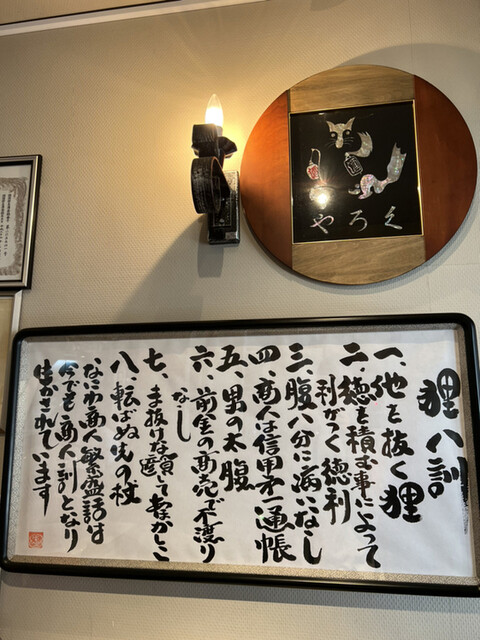 やろく
狸八訓
一、他を抜く狸
二、徳を積む事によって
利がつく徳利
三、腹八分に病いなし
四、商人は信用㐧一通帳
五、男の太腹
六、前金の商売で不渡り
なし
七、ま抜けな顔して
八、転ばぬ先の杖
なにわ商人繁盛話は
今でも商人訓となり
生かされています